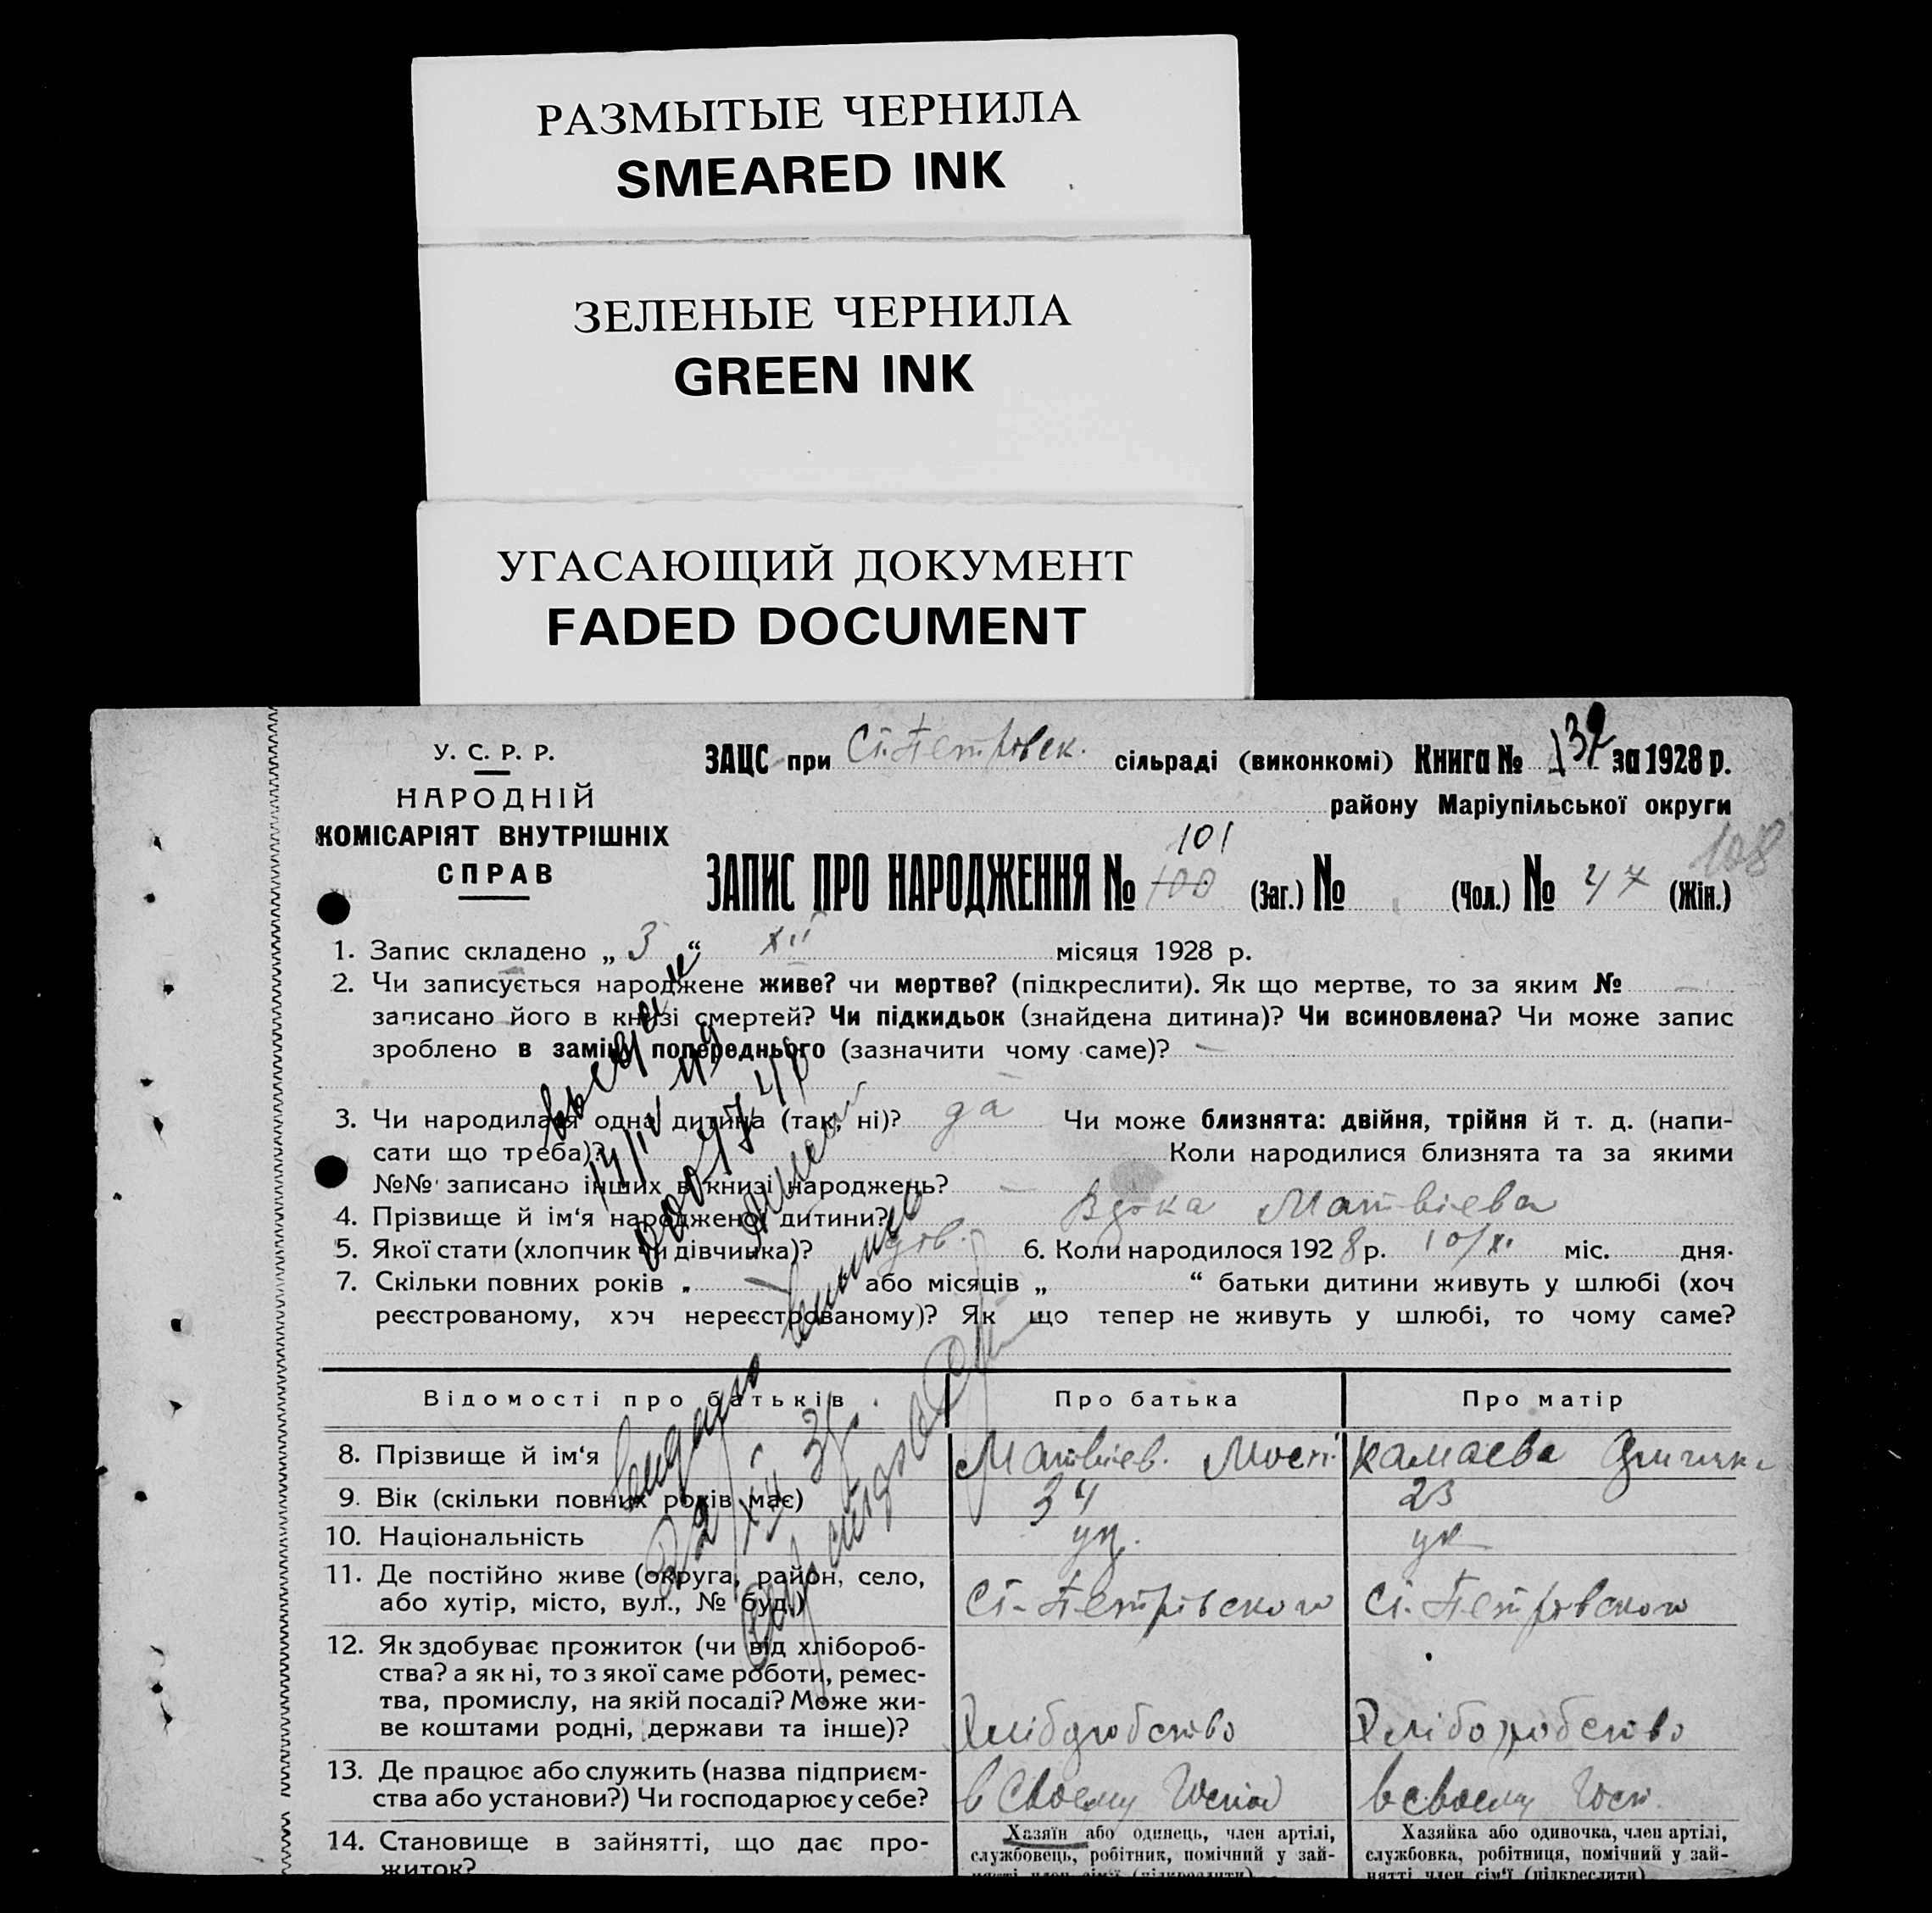 РАЗМЫТЫЕ ЧЕРНИЛА
SMEARED INK
ЗЕЛЕНЫЕ ЧЕРНИЛА
GREEN INK
УГАСАЮЩИЙ ДОКУМЕНТ
FADED DOCUMENT
У. С. Р. Р.
НАРОДНІЙ
КОМІСАРІЯТ ВНУТРІШНІХ
СПРАВ
ЗАЦС при Ст. Петрівск. сільраді (виконкомі) Книга № за 1928 р.
району Маріупільської округи
101
108
ЗАПИС ПРО НАРОДЖЕННЯ № 100 (Заг.) № (Чол.) № 47 (Жін.)
1. Запис складено „ 3 “ XII місяця 1928 р.
2. Чи записується народжене живе? чи мертве? (підкреслити). Як що мертве, то за яким №
записано його в книзі смертей? Чи підкидьок (знайдена дитина)? Чи всиновлена? Чи може запис
зроблено в заміну попереднього (зазначити чому саме)?
3. Чи народилася одна дитина (так, ні)? да Чи може близнята: двійня, трійня й т. д. (напи-
сати що треба)? Коли народилися близнята та за якими
№№ записано інших в книзі народжень?
4. Прізвище й ім‘я народженої дитини? Матвієва
5. Якої стати (хлопчик чи дівчинка)? дів. 6. Коли народилося 1928 р. 10/XI міс. дня.
7. Скільки повних років „ або місяців „ “ батьки дитини живуть у шлюбі (хоч
реєстрованому, хоч нереєстрованому)? Як що тепер не живуть у шлюбі, то чому саме?
Відомості про батьків Про батька Про матір
8. Прізвище й ім‘я Матвієв. Камаєва
9. Вік (скільки повних років має) 34 23
10. Національність ук. ук
11. Де постійно живе (округа, район, село,
або хутір, місто, вул., № буд.) Ст. Петрівского Ст. Петрівского
12. Як здобуває прожиток (чи від хлібороб-
ства? а як ні, то з якої саме роботи, ремес-
тва, промислу, на якій посаді? Може жи-
ве коштами родні, держави та інше)? Хліборобство Хліборобство
13. Де працює або служить (назва підприєм-
ства або установи?) Чи господарює у себе? в своєму Госп в своєму Госп.
14. Становище в зайнятті, що дає про-
житок?
Хазяїн або одинець, член артілі,
службовець, робітник, помічний у зай-
нятті член сім‘ї (підкреслити)
Хазяйка або одиночка, член артілі,
службовка, робітниця, помічний у зай-
нятті член сім‘ї (підкреслити)